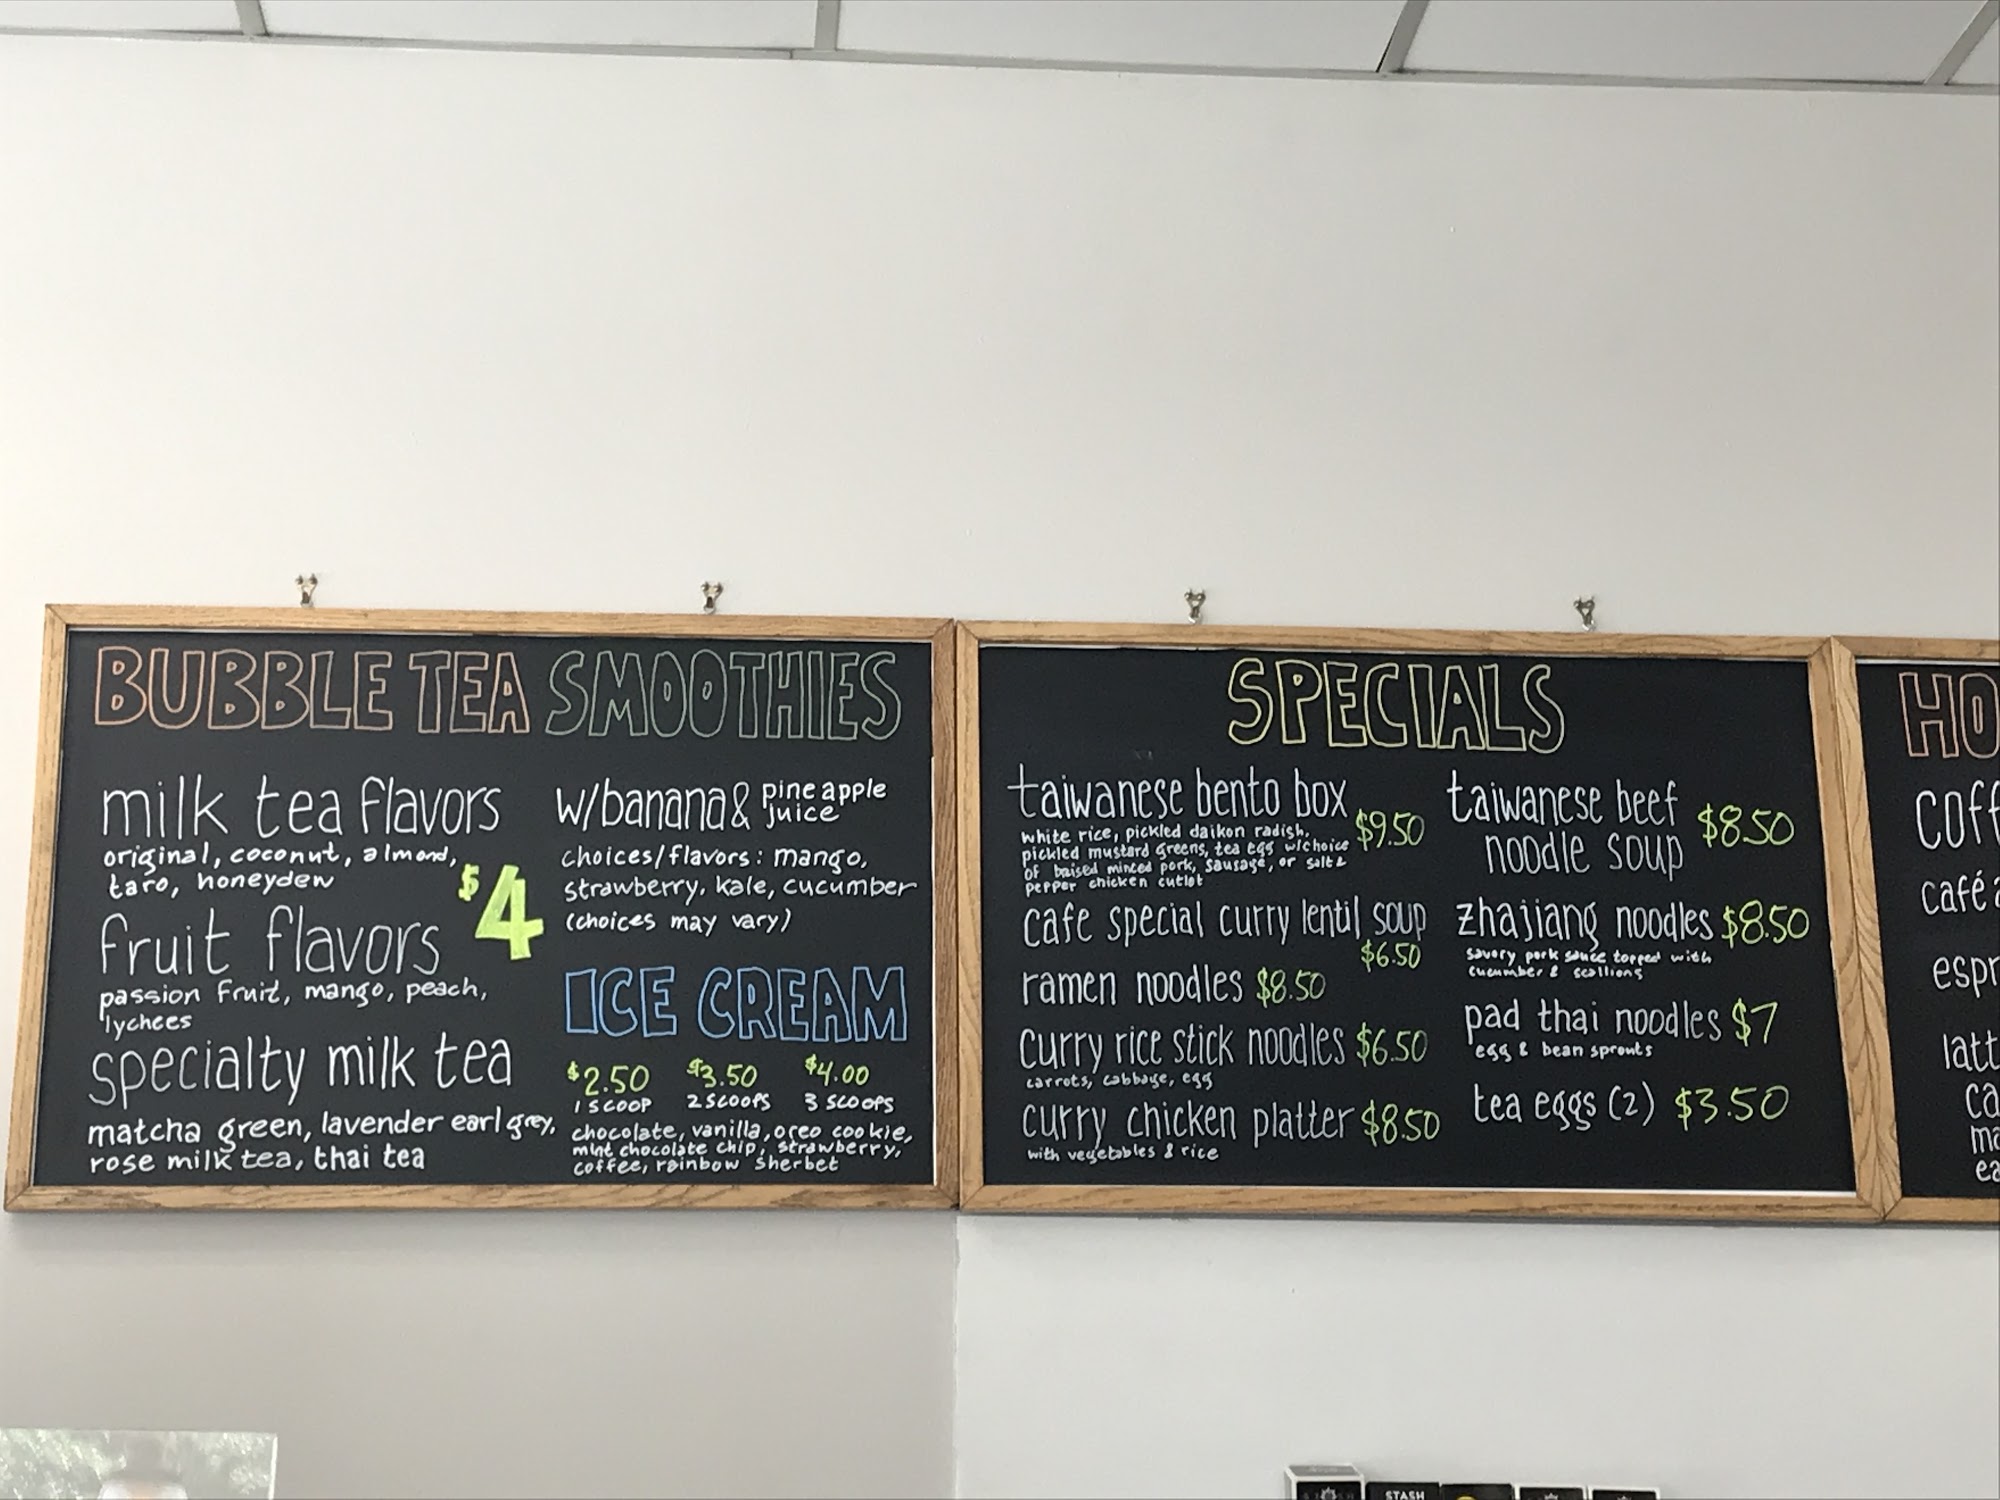 BUBBLE TEA
milk tea flavors
original, coconut, almond,
taro, honeydew
fruit flavors
passion fruit, mango, peach,
lychees
$4
specialty milk tea
matcha green, lavender earl grey,
rose milk tea, thai tea
SMOOTHIES
w/banana & pineapple
juice
choices/flavors: mango,
strawberry, kale, cucumber
(choices may vary)
ICE CREAM
$2.50 $3.50 $4.00
1 SCOOP 2 SCOOPS 3 SCOOPS
chocolate, vanilla, oreo cookie,
mint chocolate chip, strawberry,
coffee, rainbow sherbet
SPECIALS
taiwanese bento box $9.50
white rice, pickled daikon radish,
pickled mustard greens, tea egg w/choice
of baised minced pork, sausage, or salt &
pepper chicken cutlet
cafe special curry lentil soup
$6.50
ramen noodles $8.50
curry rice stick noodles $6.50
carrots, cabbage, egg
curry chicken platter $8.50
with vegetables & rice
taiwanese beef
noodle soup $8.50
zhajiang noodles $8.50
savory pork sauce topped with
cucumber & scallions
pad thai noodles $7
egg & bean sprouts
tea eggs (2) $3.50
HO
coff
café a
espr
latt
ca
ma
ea
STASH